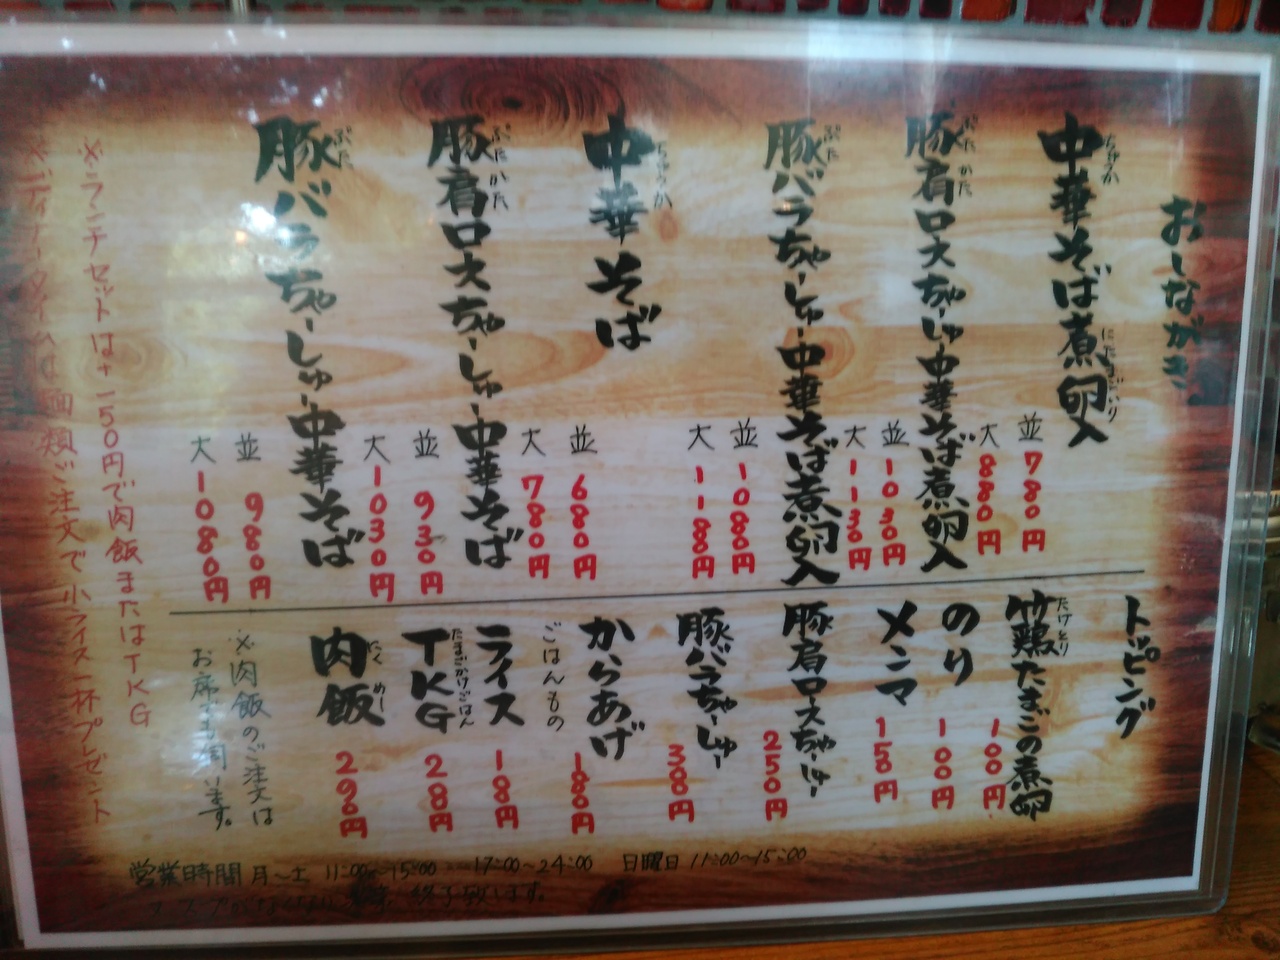 おしながき
中華そば煮卵入
ちゅうか
にたまごいり
並 780円
大 880円
豚肩ロースちゃーしゅー中華そば煮卵入
ぶたかた
並 1030円
大 1130円
豚バラちゃーしゅー中華そば煮卵入
ぶた
並 1080円
大 1180円
中華そば
ちゅうか
並 680円
大 780円
豚肩ロースちゃーしゅー中華そば
ぶたかた
並 930円
大 1030円
豚バラちゃーしゅー中華そば
ぶた
並 980円
大 1080円
トッピング
竹鶏たまごの煮卵
たけとり
100円
のり
100円
メンマ
150円
豚肩ロースちゃーしゅー
250円
豚バラちゃーしゅー
300円
からあげ
180円
ごはんもの
ライス
100円
TKG
たまごかけごはん
200円
肉飯
にくめし
290円
※肉飯のご注文は
お席でも伺います。
※ランチセットは+150円で肉飯またはTKG
※ディナータイムは麺類ご注文で小ライス一杯プレゼント
営業時間 月〜土 11:00〜15:00 17:00〜24:00 日曜日 11:00〜15:00
終了致します。